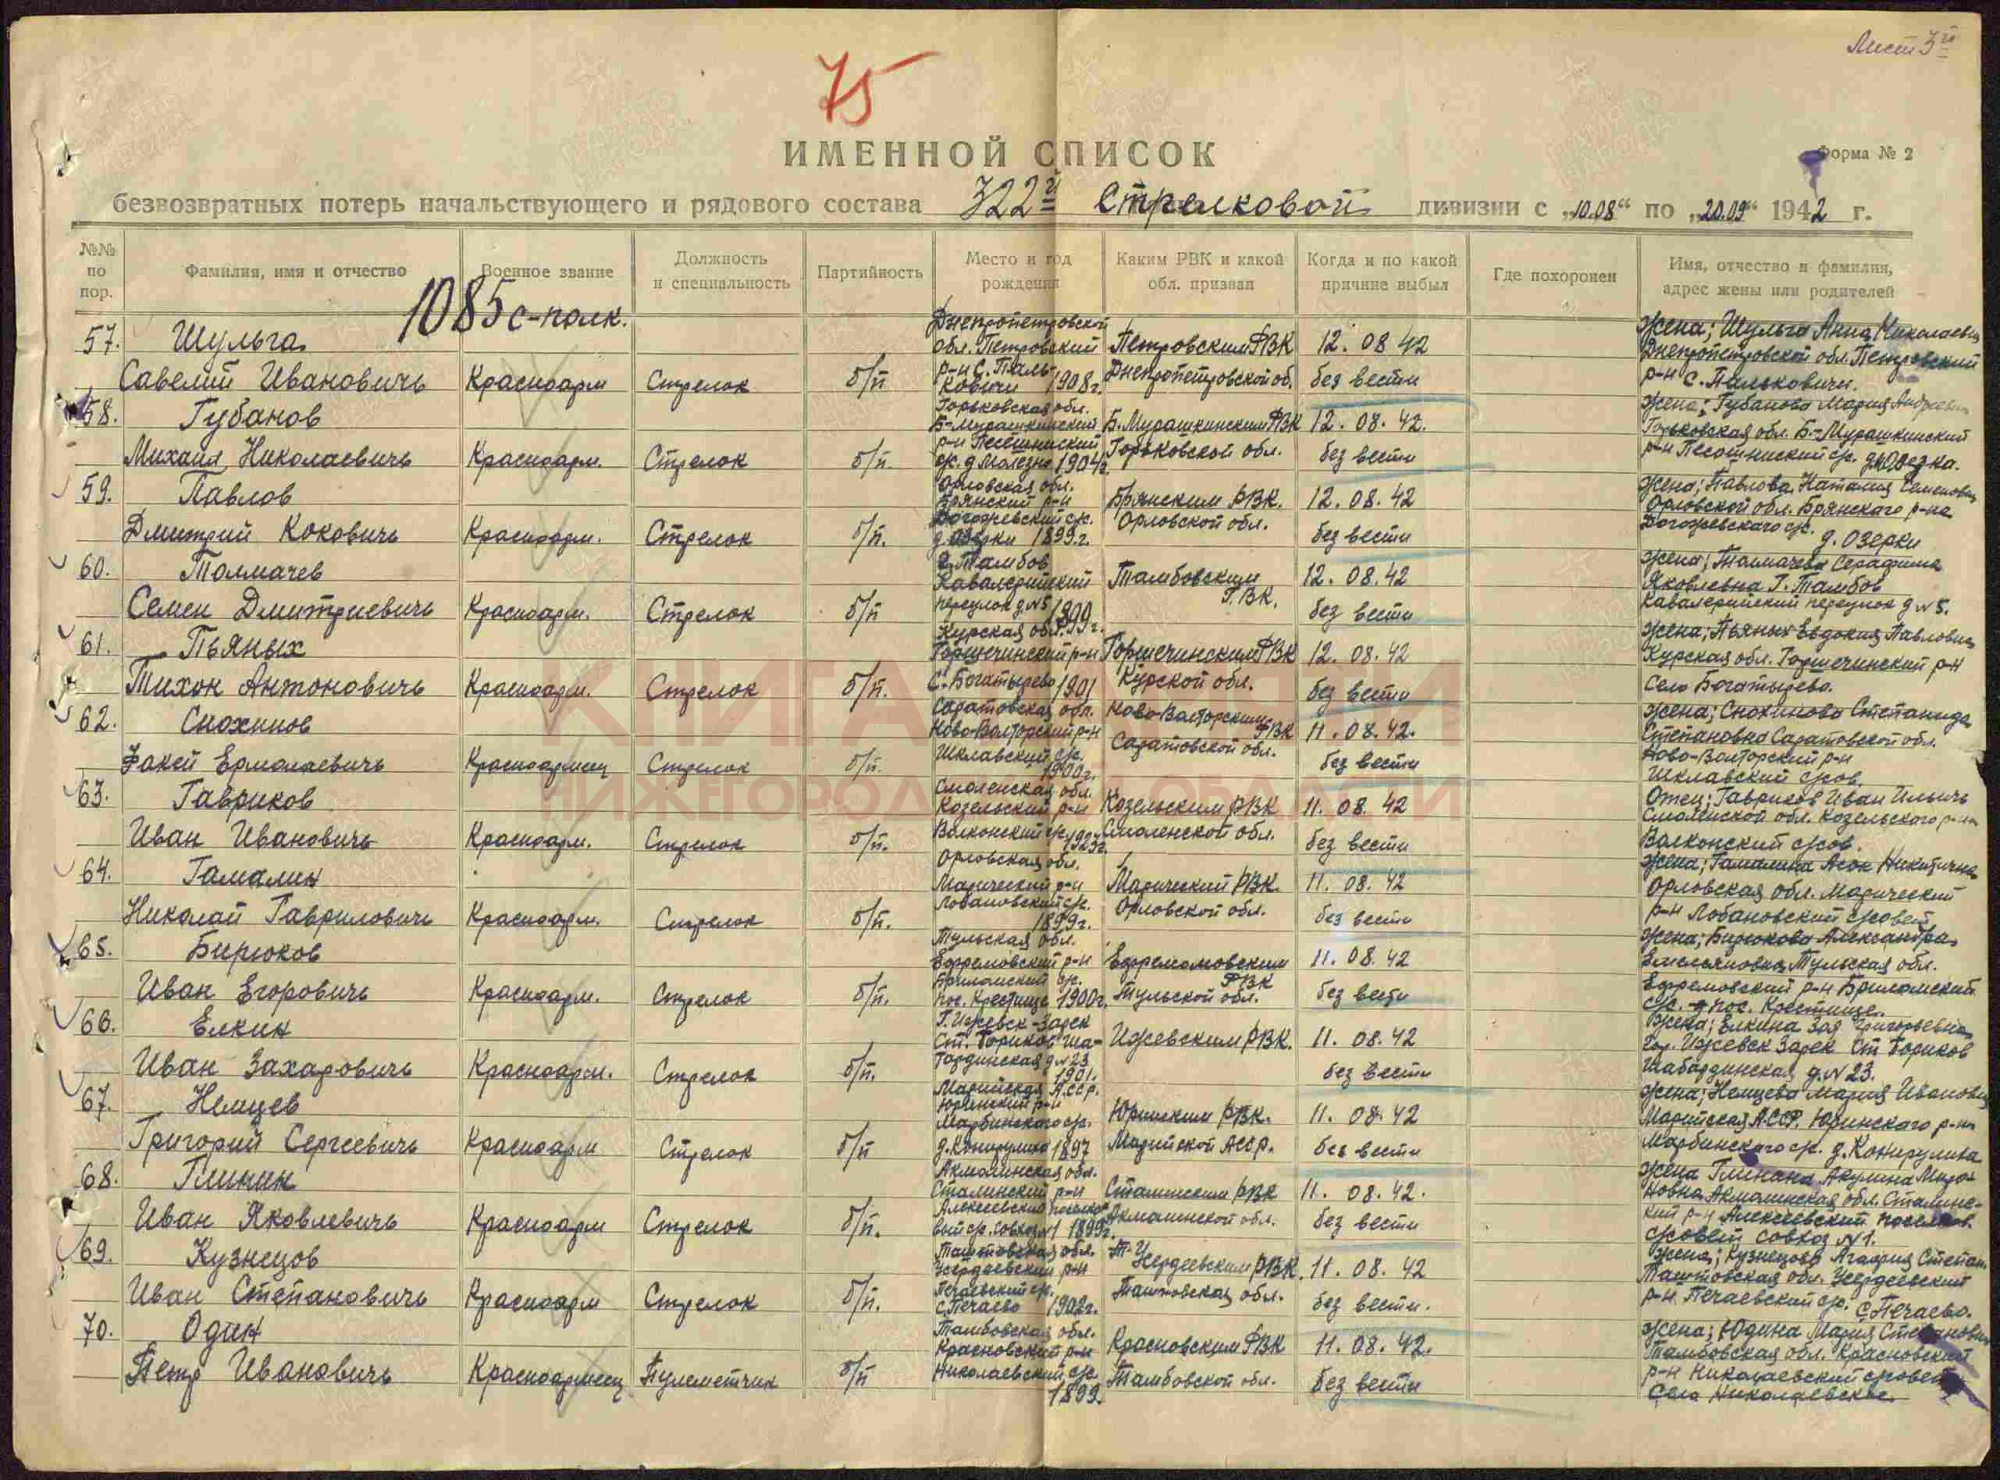 Лист 3й
75
ИМЕННОЙ СПИСОК
Форма № 2
безвозвратных потерь начальствующего и рядового состава 322й Стрелковой дивизии с „10.08“ по „20.09“ 1942 г.
№№ по пор.
Фамилия, имя и отчество
Военное звание
Должность и специальность
Партийность
Место и год рождения
Каким РВК и какой обл. призван
Когда и по какой причине выбыл
Где похоронен
Имя, отчество и фамилия, адрес жены или родителей
1085 с-полк.
57. Шульга Савелий Ивановичь Красноарм Стрелок б/п Днепропетровской обл. Петровский р-н с. Паль-ковичи 1908г. Петровским РВК Днепропетровской об. 12.08 42 без вести Жена; Шульга Анна Николаевн Днепропетровской обл. Петровский р-н с. Пальковичи.
58. Губанов Михаил Николаевичь Красноарм. Стрелок б/п Горьковская обл. Б-Мурашкинский р-н 1904г. Б. Мурашкинским РВК Горьковской обл. 12.08.42. без вести Жена; Губанова Мария Горьковская обл. Б.-Мурашкинский р-н
59. Павлов Дмитрий Коковичь Красноарм. Стрелок б/п. Орловская обл. Брянский р-н с/с. д. Озерки 1899.г. Брянским РВК. Орловской обл. 12.08.42 без вести Жена; Павлова Наталия Орловской обл. Брянского р-на с/с. д. Озерки
60. Толмачев Семен Дмитриевичь Красноарм. Стрелок б/п г. Тамбов Кавалерийский переулок д.№5 1899г. Тамбовским Г.ВК. 12.08.42 без вести Жена; Толмачева Серафима Яковлевна г. Тамбов Кавалерийский переулок д №5.
61. Пьяных Тихон Антоновичь Красноарм. Стрелок б/п. Курская обл. Горшечинский р-н с. Богатырево 1901 Горшечинским РВК Курской обл. 12.08.42 без вести Жена; Пьяных Евдокия Павловна Курская обл. Горшечинский р-н Село Богатырево.
62. Снохинов Фокей Ермолаевичь Красноармеец Стрелок б/п. Саратовская обл. Шклавский с/с. 1900г. РВК Саратовской обл. 11.08.42. без вести Жена; Снохинова Степанида Степановна Саратовской обл. Шклавский с/сов
63. Гавриков Иван Ивановичь Красноарм. Стрелок б/п. Смоленская обл. Козельский р-н Волконский с/с. 1923г. Козельским РВК Смоленской обл. 11.08.42 без вести Отец; Гавриков Иван Ильичь Смоленской обл. Козельского р-на Волконский с/сов.
64. Гамалин Николай Гавриловичь Красноарм. Стрелок б/п. Орловская обл. р-н Лобановский с/с. 1899г. РВК. Орловской обл. 11.08.42 без вести Жена; Гамалина Орловская обл. р-н Лобановский с/совет
65. Бирюков Иван Егоровичь Красноарм. Стрелок б/п. Тульская обл. Ефремовский р-н с/с. пос. Крестище 1900г. Ефремомовским РВК Тульской обл. 11.08.42 без вести Жена; Бирюкова Александра Емельяновна Тульская обл. Ефремовский р-н с/с. пос. Крестище.
66. Елкин Иван Захаровичь Красноарм. Стрелок б/п. г. Ижевск-Зарек д №23 1901. Ижевским РВК. 11.08.42 без вести Жена; Елкина Зоя Григорьевна Гор. Ижевск Зарек д.№23.
67. Немцев Григорий Сергеевичь Красноарм Стрелок б/п Марийская АССР. Юринский р-н Марбинского с/с. 1897 Юринским РВК. Марийской АССР. 11.08.42 без вести Жена; Немцева Мария Ивановна Марийская АССР. Юринского р-на Марбинского с/с.
68. Глинин Иван Яковлевичь Красноарм Стрелок б/п. Акмолинская обл. Сталинский р-н 1899г. Сталинским РВК Акмолинской обл. 11.08.42. без вести Жена Глинина Акулина Акмолинская обл. Сталинс-кий р-н Алексеевский поселков. с/совет совхоз №1.
69. Кузнецов Иван Степановичь Красноарм Стрелок б/п. обл. р-н Печаевский с/с. с. Печаево 1902г. РВК. обл. 11.08.42 без вести. Жена; Кузнецова Агафия Степан. обл. р-н Печаевский с/с. с. Печаево.
70. Один Петр Ивановичь Красноармеец Пулеметчик б/п Тамбовская обл. Красновский р-н Николаевский с/с. 1899. Красновским РВК Тамбовской обл. 11.08.42. без вести Жена; Юдина Мария Степановна Тамбовская обл. Красновский р-н Николаевский с/совет Село Николаевское.
КНИГА ПАМЯТИ
НИЖЕГОРОДСКОЙ ОБЛАСТИ